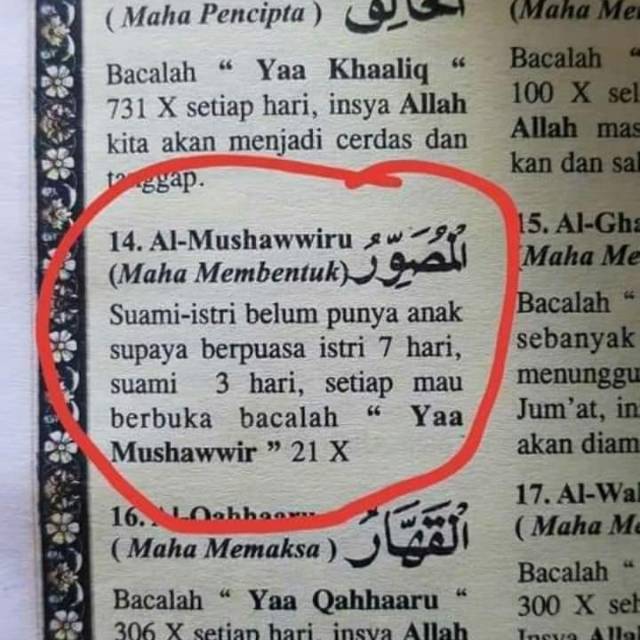 ( Maha Pencipta ) الخالق
Bacalah “ Yaa Khaaliq “
731 X setiap hari, insya Allah
kita akan menjadi cerdas dan
tanggap.
14. Al-Mushawwiru الْمُصَوِّرُ
(Maha Membentuk)
Suami-istri belum punya anak
supaya berpuasa istri 7 hari,
suami 3 hari, setiap mau
berbuka bacalah “ Yaa
Mushawwir ” 21 X
16. Al-Qahhaaru الْقَهَّارُ
( Maha Memaksa )
Bacalah “ Yaa Qahhaaru “
306 X setiap hari, insya Allah
(Maha
Bacalah “
100 X
Allah
kan dan
15.
Maha
Bacalah “
sebanyak
menunggu
Jum'at,
akan
17.
( Maha
Bacalah “
300 X